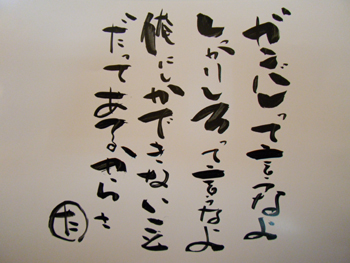 がさいって言うなよ
しっかりしろって言うなよ
俺にしかできないこと
だってあるからさ
た